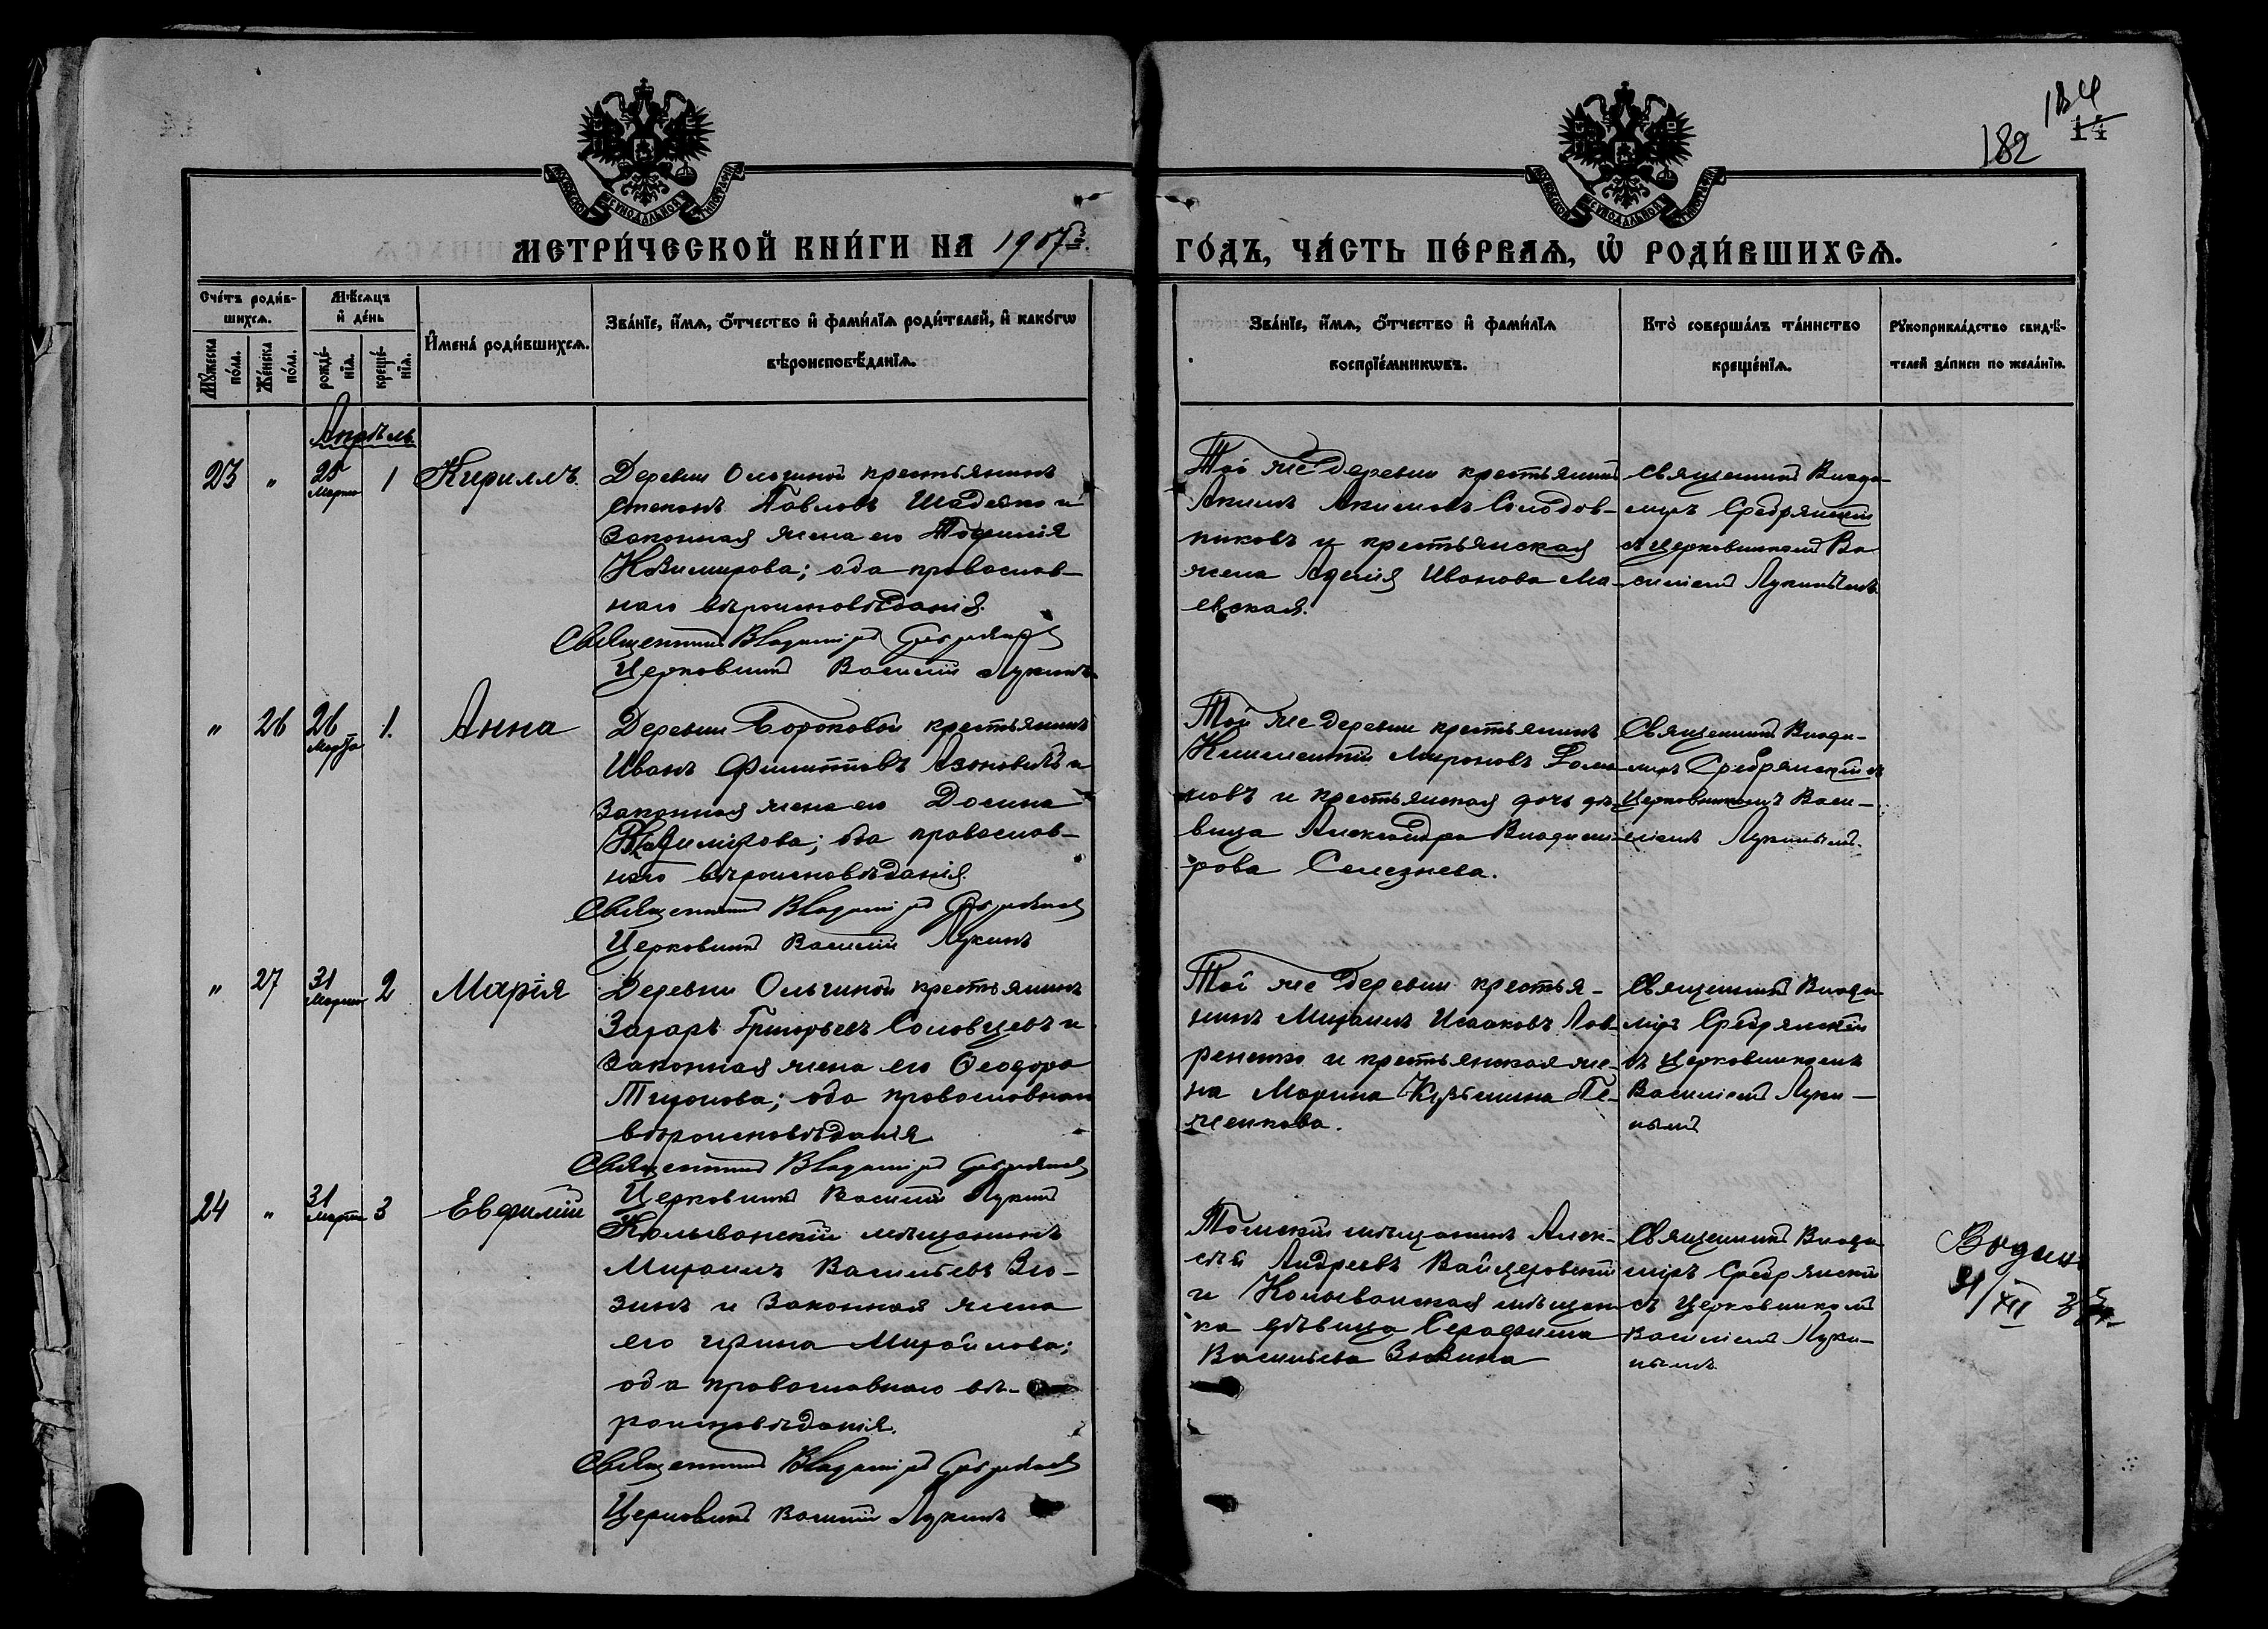 184
14
182
МЕТРИ́ЧЕСКОЙ КНИ́ГИ НА 1907й
ГО́ДЪ, ЧА́СТЬ ПЕ́РВАѦ, Ѡ҆ РОДИ́ВШИХСѦ.
Сче́тъ роди́в-
шихсѧ.
Мѣ́сѧцъ
и҆ де́нь
Мꙋ́жеска
по́ла.
Же́нска
по́ла.
рожде́-
нїѧ.
креще́-
нїѧ.
И҆мена̀ роди́вшихсѧ.
Зва́нїе, и҆́мѧ, ѻ҆́тчество и҆ фами́лїѧ роди́телей, и҆ како́гѡ
вѣроисповѣ́данїѧ.
Зва́нїе, и҆́мѧ, ѻ҆́тчество и҆ фами́лїѧ
воспрїе́мникѡвъ.
Кто̀ соверша́лъ та́инство
креще́нїѧ.
Рꙋкоприкла́дство свидѣ́-
телей за́писи по жела́нїю.
Апрѣль
23 " 25 Марта 1 Кириллъ
Деревни Ольгиной крестьянинъ
Степанъ Павловъ Шадейко и
законная жена его
; оба православ-
наго вѣроисповѣданія.
Священникъ Владиміръ Сребрянскій
Церковникъ Василій Лукинъ
Той же деревни крестьянинъ
Акимъ Акимовъ Солодов-
никовъ и крестьянская
жена Иванова Ма-
евская.
Священникъ Влади-
міръ Сребрянскій
съ церковникомъ Ва
силіемъ Лукинымъ
" 26 26 Марта 1. Анна
Деревни Боровой крестьянинъ
Иванъ Филипповъ Азоновичъ и
законная жена его Домна
Владимірова; оба православ-
наго вѣроисповѣданія.
Священникъ Владиміръ Сребрянскій
Церковникъ Василій Лукинъ
Той же деревни крестьянинъ
Климентій Мироновъ
новъ и крестьянская дочь дѣ-
вица Александра Владими-
рова Селезнева.
Священникъ Влади-
міръ Сребрянскій съ
Церковникомъ Васи-
ліемъ Лукинымъ.
" 27 31 Марта 2 Марія
Деревни Ольгиной крестьянинъ
Захаръ Григорьевъ Соловцевъ и
законная жена его Ѳеодора
Тихонова; оба православнаго
вѣроисповѣданія
Священникъ Владиміръ Сребрянскій
Церковникъ Василій Лукинъ
Той же деревни крестья-
нинъ Михаилъ Исааковъ Лав-
ренко и крестьянская же-
на Марина Кузьмина Пе-
женкова.
Священникъ Влади
міръ Сребрянскій
съ Церковникомъ
Василіемъ Луки-
нымъ
24 " 31 Марта 3 Евфимій
Колыванскій мѣщанинъ
Михаилъ Васильевъ Вю-
зинъ и законная жена
его Ирина Михайлова;
оба православнаго вѣ-
роисповѣданія.
Священникъ Владиміръ Сребрянскій
Церковникъ Василій Лукинъ
Томскій мѣщанинъ Алек-
сѣй Андреевъ
и Колыванская мѣщан-
ка дѣвица Серафима
Васильева
Священникъ Влади
міръ Сребрянскій
съ Церковникомъ
Василіемъ Луки-
нымъ.
XII